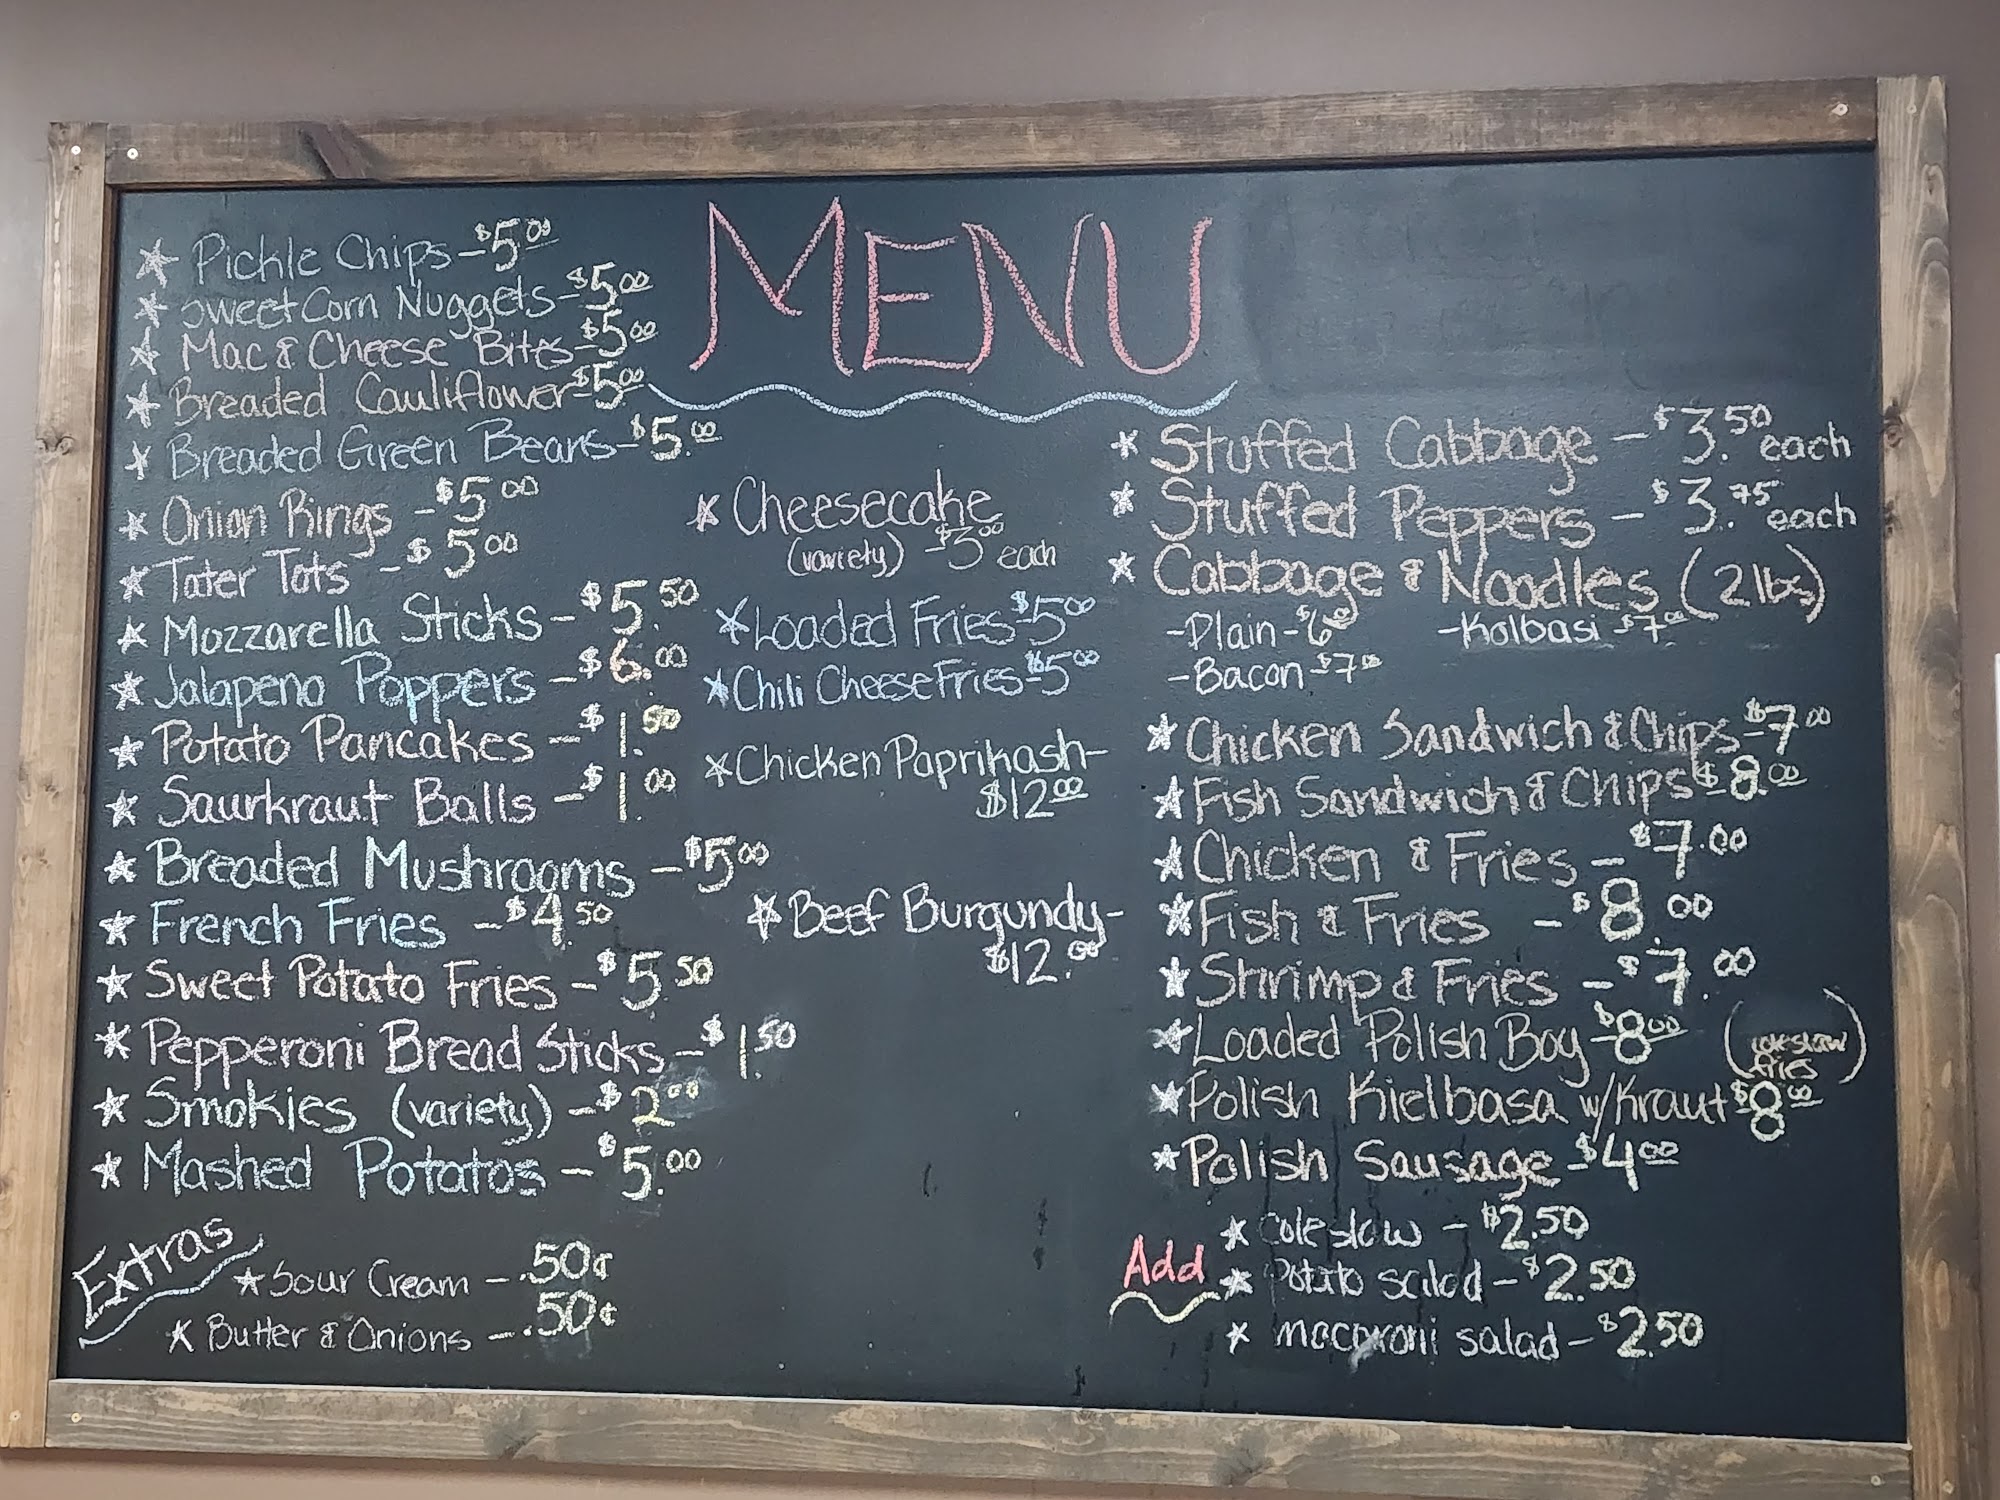 MENU
Pickle Chips - $5.00
Sweet Corn Nuggets - $5.00
Mac & Cheese Bites - $5.00
Breaded Cauliflower - $5.00
Breaded Green Beans - $5.00
Onion Rings - $5.00
Tater Tots - $5.00
Mozzarella Sticks - $5.50
Jalapeno Poppers - $6.00
Potato Pancakes - $1.50
Saurkraut Balls - $1.00
Breaded Mushrooms - $5.00
French Fries - $4.50
Sweet Potato Fries - $5.50
Pepperoni Bread Sticks - $1.50
Smokies (variety) - $2.00
Mashed Potatos - $5.00
Extras
Sour Cream - .50¢
Butter & Onions - .50¢
Cheesecake
(variety) - $3.00 each
Loaded Fries - $5.00
Chili Cheese Fries - $5.00
Chicken Paprikash -
$12.00
Beef Burgundy -
$12.00
Stuffed Cabbage - $3.50 each
Stuffed Peppers - $3.75 each
Cabbage & Noodles (2lbs)
-Plain - $6.00 -Kolbasi - $7.00
-Bacon - $7.00
Chicken Sandwich & Chips - $7.00
Fish Sandwich & Chips $8.00
Chicken & Fries - $7.00
Fish & Fries - $8.00
Shrimp & Fries - $7.00
Loaded Polish Boy - $8.00 (coleslaw
fries)
Polish Kielbasa w/Kraut $8.00
Polish Sausage - $4.00
Add
Coleslow - $2.50
Potato salad - $2.50
macaroni salad - $2.50